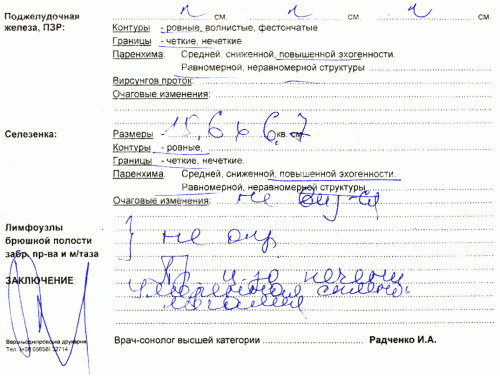 Поджелудочная железа, ПЗР: см. см. см.
Контуры - ровные, волнистые, фестончатые
Границы - четкие, нечеткие
Паренхима: Средней, сниженной, повышенной эхогенности.
Равномерной, неравномерной структуры
Вирсунгов проток:
Очаговые изменения:
Селезенка: Размеры - 15,6 х 6,7 кв. см.
Контуры - ровные,
Границы - четкие, нечеткие.
Паренхима: Средней, сниженной, повышенной эхогенности.
Равномерной, неравномерной структуры
Очаговые изменения: не
Лимфоузлы
брюшной полости
забр. пр-ва и м/таза
не опр
ЗАКЛЮЧЕНИЕ: печени
Умеренная
Верхньодніпровська друкарня
Тел.
Врач-сонолог высшей категории Радченко И.А.